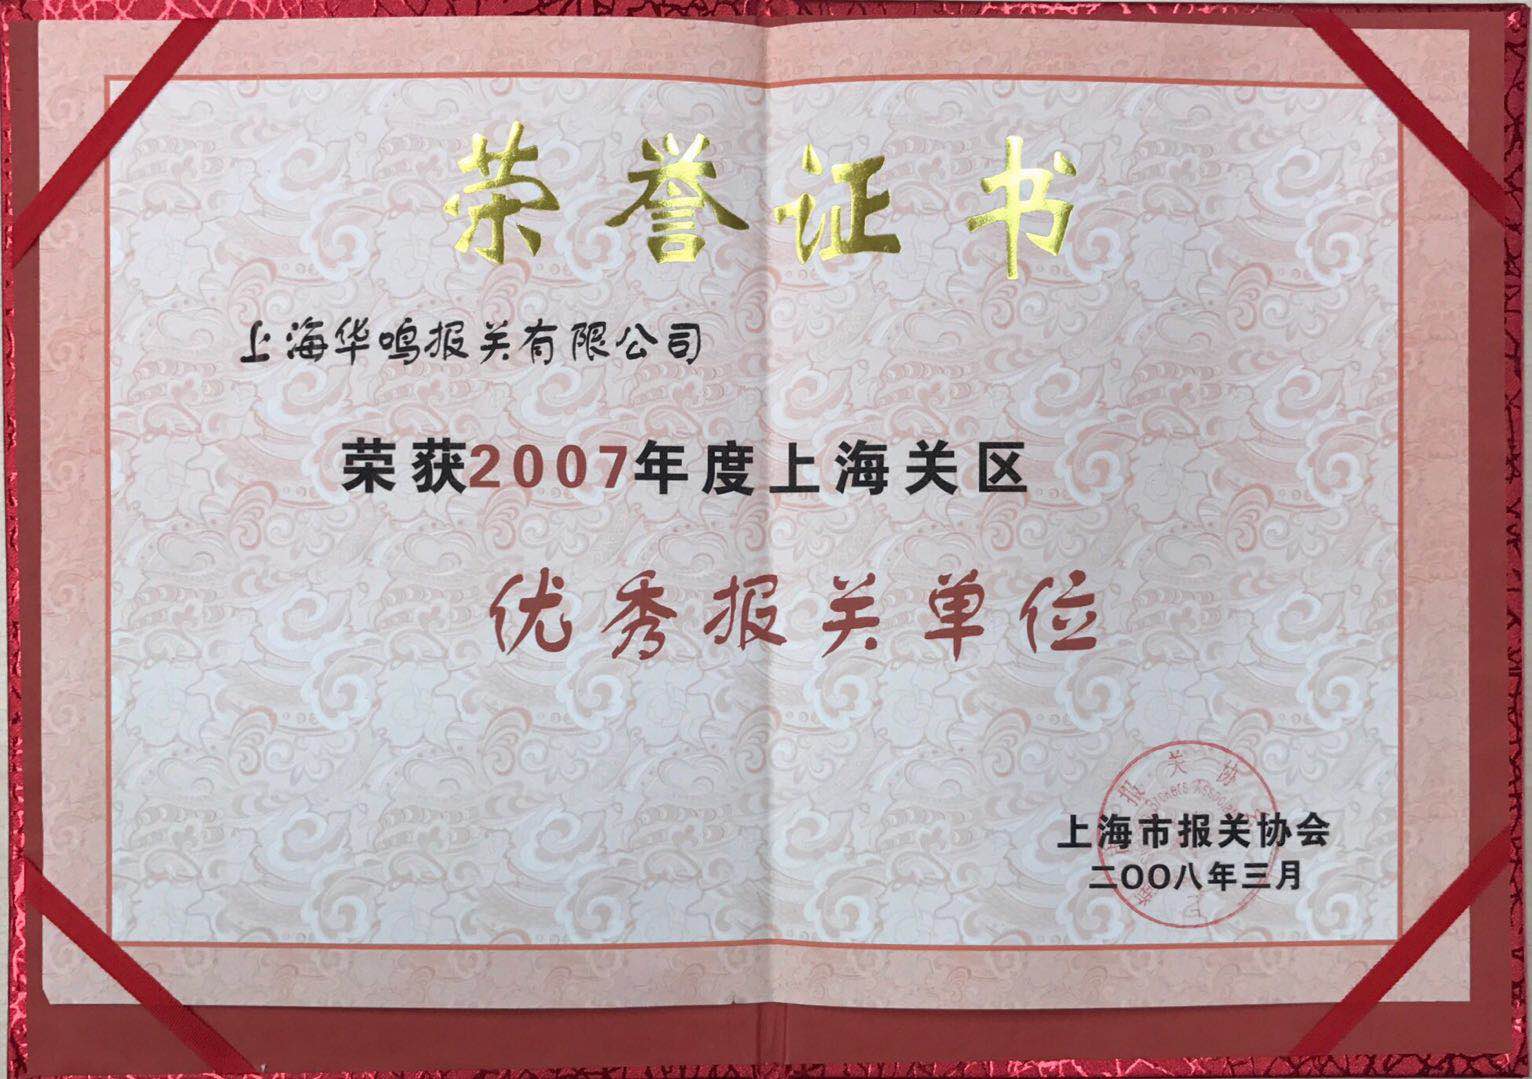 荣誉证书
上海华鸣报关有限公司
荣获2007年度上海关区
优秀报关单位
报关协
上海市报关协会
二OO八年三月